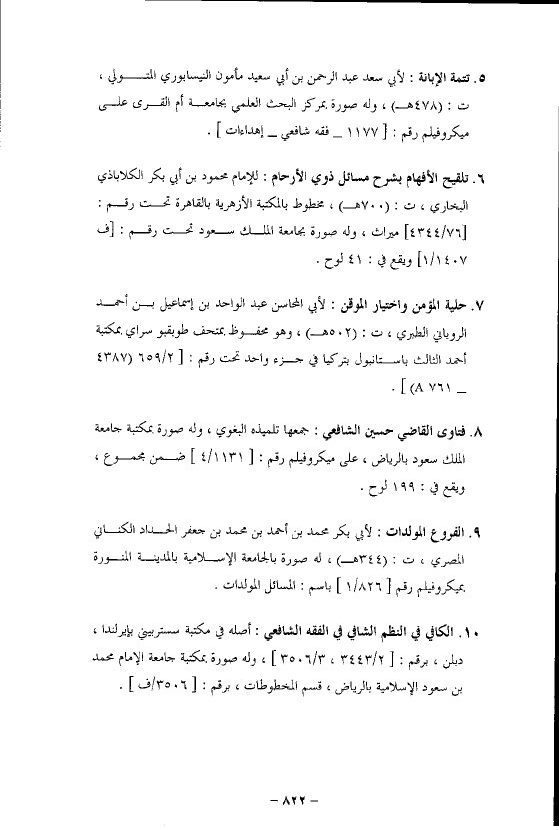 ٥. تتمة الإبانة : لأبي سعد عبد الرحمن بن أبي سعيد مأمون النيسابوري المتـــولي ،
ت : (٤٧٨هــ) ، وله صورة بمركز البحث العلمي بجامعــة أم القــرى علــى
ميكروفيلم رقم : [ ١١٧٧ _ فقه شافعي _ إهداءات ] .
٦. تلقيح الأفهام بشرح مسائل ذوي الأرحام : للإمام محمود بن أبي بكر الكلاباذي
البخاري ، ت : (٧٠٠هــ) ، مخطوط بالمكتبة الأزهرية بالقاهرة تحــت رقــم :
[٤٣٤٤/٧٦] ميراث ، وله صورة بجامعة الملــك ســعود تحــت رقــم : [ف
١/١٤٠٧] ويقع في : ٤١ لوح .
٧. حلية المؤمن واختيار الموقن : لأبي المحاسن عبد الواحد بن إسماعيل بــن أحمــد
الروياني الطبري ، ت : (٥٠٢هــ) ، وهو محفــوظ بمتحف طوبقبو سراي بمكتبة
أحمد الثالث باســتانبول بتركيا في جــزء واحد تحت رقم : [ ٦٥٩/٢ (٤٣٨٧
_ A ٧٦١) ] .
٨. فتاوى القاضي حسين الشافعي : جمعها تلميذه البغوي ، وله صورة بمكتبة جامعة
الملك سعود بالرياض ، على ميكروفيلم رقم : [ ٤/١١٣١ ] ضــمن مجمــوع ،
ويقع في : ١٩٩ لوح .
٩. الفروع المولدات : لأبي بكر محمد بن أحمد بن محمد بن جعفر الحــداد الكنــاني
المصري ، ت : (٣٤٤هــ) ، له صورة بالجامعة الإســلامية بالمدينــة المنــورة
بميكروفيلم رقم [ ١/٨٢٦ ] باسم : المسائل المولدات .
١٠. الكافي في النظم الشافي في الفقه الشافعي : أصله في مكتبة سستربيتي بإيرلندا ،
دبلن ، برقم : [ ٣٤٤٣/٢ ، ٣٥٠٦/٣ ] ، وله صورة بمكتبة جامعة الإمام محمد
بن سعود الإسلامية بالرياض ، قسم المخطوطات ، برقم : [ ٣٥٠٦/ف ] .
– ٨٢٢ –